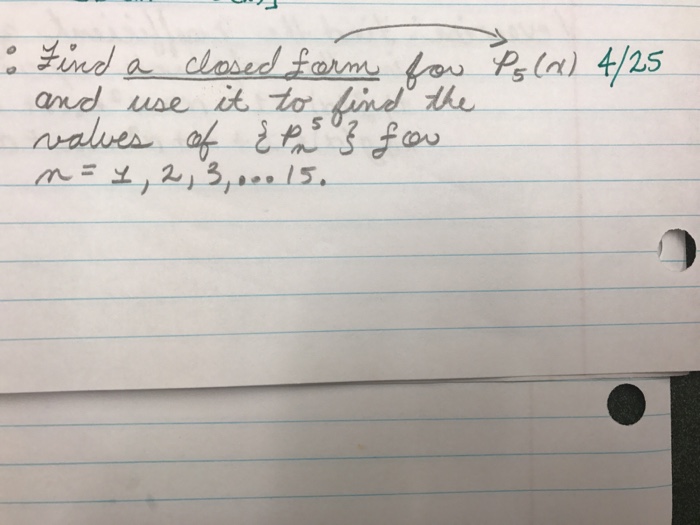 : Find a closed form for P₅(x) 4/25
and use it to find the
values of {Pₙ⁵} for
n = 1, 2, 3, ... 15.